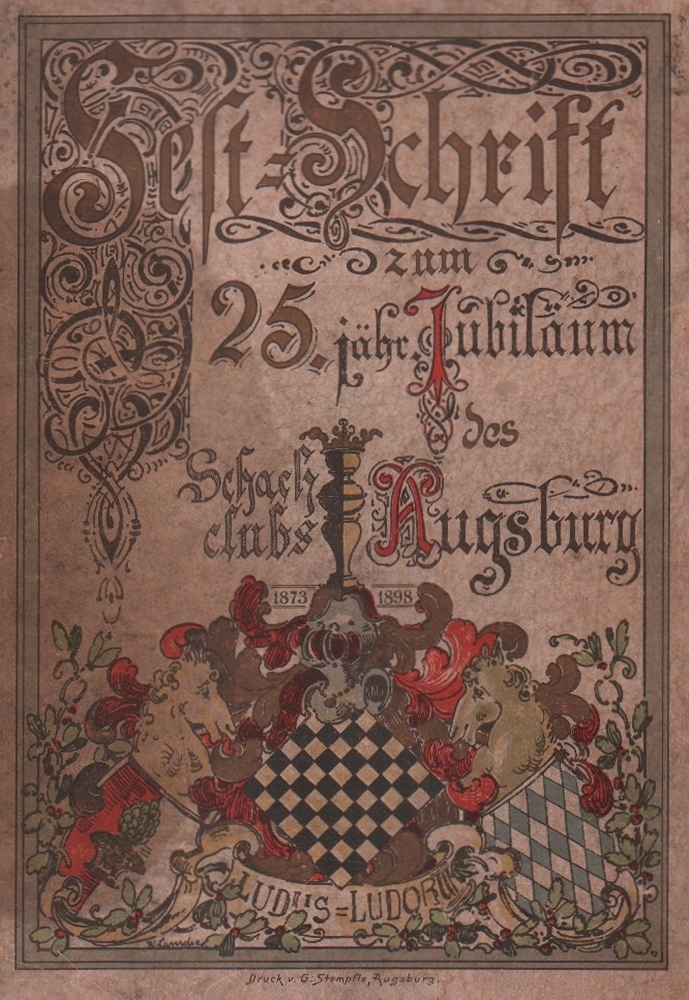 Fest=Schrift
zum
25. jähr. Jubiläum
des
Schach
clubs Augsburg
1873 1898
LUDUS=LUDORUM
Druck v. G. Stempfle, Augsburg.